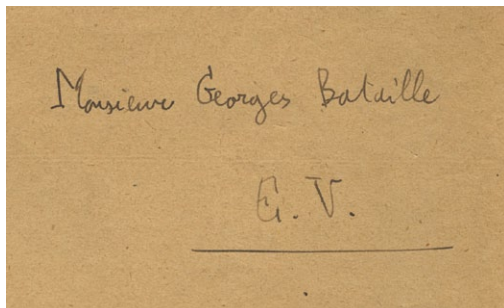 Monsieur Georges Bataille
E. V.